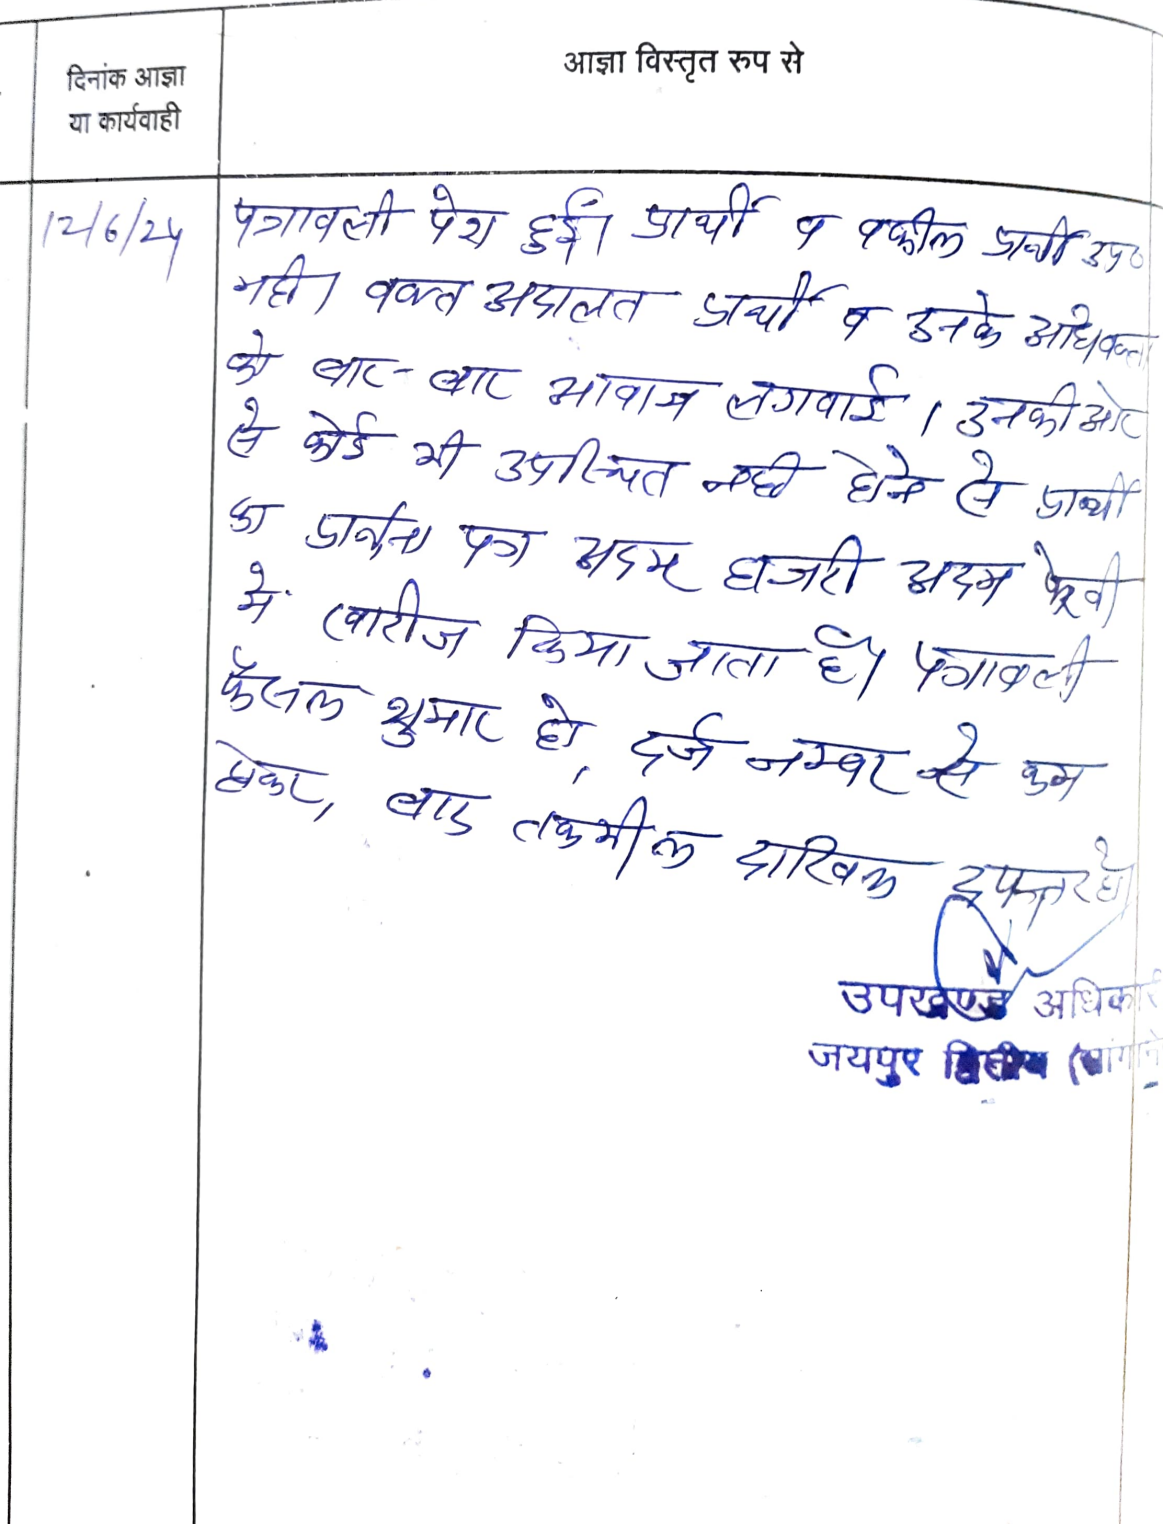 आज्ञा विस्तृत रुप से
दिनांक आज्ञा
या कार्यवाही
12/6/24
पत्रावली पेश हुई। प्रार्थी व वकील प्रार्थी उप०
नही। वक्त अदालत प्रार्थी व उनके अधिवक्ता
को बार-बार आवाज लगवाई। उनकी ओर
से कोई भी उपस्थित नही होने से प्रार्थी
का प्रार्थना पत्र अदम हाजरी अदम पैरवी
में खारीज किया जाता है। पत्रावली
फैसल शुमार हो, दर्ज नम्बर से कम
होकर, बाद तकमील दाखिल दफ्तर हो।
उपखण्ड अधिकारी
जयपुर द्वितीय (सांगाने